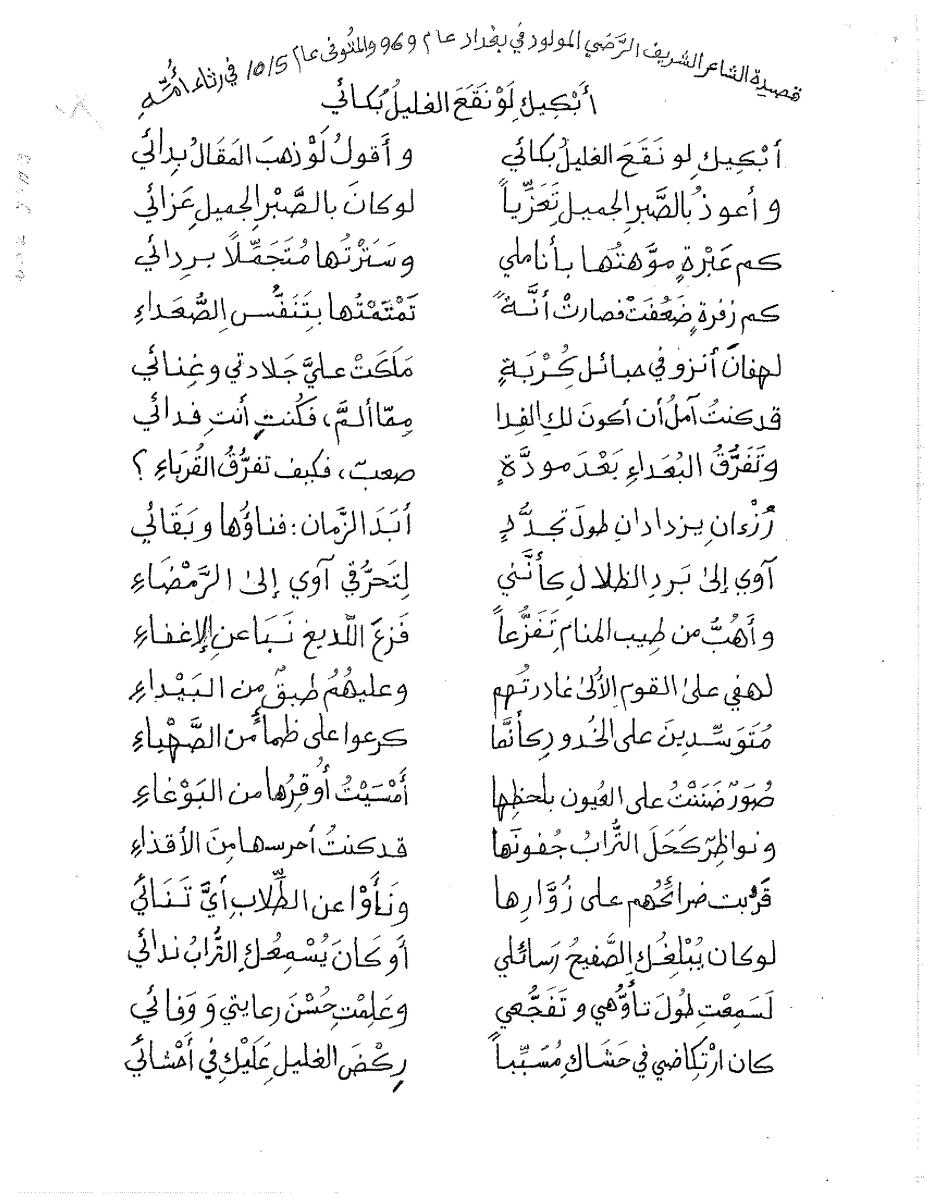 قصيدة الشاعر الشريف الرَّضي المولود في بغداد عام 969 والمتُوفى عام 1015 في رثاء أُمِّهِ
أبْكِيكِ لَوْ نَقَعَ الغليلَ بُكائي
أبْكِيكِ لو نَقَعَ الغليلَ بكائي وأقولُ لَوْ ذهبَ المَقالُ بِدائي
وأعوذُ بالصَّبرِ الجميلِ تَعَزِّياً لو كانَ بالصَّبْرِ الجميلِ عَزائي
كم عَبْرةٍ موَّهتُها بأناملي وسَتَرْتُها مُتَجَمِّلاً بردائي
كم زفرةٍ ضَعُفَتْ فصارتْ أنَّةً تَمْتَمْتُها بتَنَفُّس الصُّعَداءِ
لهفانَ أنزو في حبائل كُرْبَةٍ مَلَكَتْ عليَّ جَلادتي وغِنائي
قد كنتُ آملُ أن أكونَ لكِ الفِدا مِمّا ألمَّ، فكُنتِ أنتِ فدائي
وتَفَرُّقُ البُعَداءِ بَعْدَ مودَّةٍ صعبٌ، فكيف تفرُّقُ القُرَباءِ ؟
رُزْءانِ يزدادانِ طولَ تجدُّدٍ أبَدَ الزَّمانِ: فناؤُها وبَقَائي
آوي إلىٰ بَردِ الظلالِ كأنَّني لِتَحرُّقي آوي إلىٰ الرَّمْضَاءِ
وأهُبُّ من طِيبِ المنامِ تَفَزُّعاً فَزَعَ اللّديغِ نَبَا عنِ الإغفاءِ
لهفي علىٰ القومِ الأُلىٰ غادرتُهم وعليهُمُ طبقٌ من البَيْداءِ
مُتَوَسِّدِينَ على الخُدودِ كأنَّما كرعوا على ظمأٍ من الصَّهْباءِ
صُوَرٌ ضَنَنْتُ على العُيونِ بلحظِها أمْسَيْتُ أُوقِرُها من البَوْغاءِ
ونواظِرٌ كَحَلَ التُّرابُ جُفونَها قد كنتُ أحرسها مِنَ الأقذاءِ
قَرُبت ضرائحُهم على زُوَّارِها ونَأَوْا عن الطِّلابِ أيَّ تَنَائي
لو كان يُبْلِغُكِ الصَّفيحُ رَسائلي أو كَانَ يُسْمِعُكِ التُّرابُ ندائي
لَسَمِعْتِ طُولَ تأوُّهي وتَفَجُّعي وعَلِمْتِ حُسْنَ رعايتي وَوَفائي
كان ارْتِكاضي في حَشَاكِ مُسَبِّباً رِكْضَ الغليلِ عَلَيْكِ في أحْشائي